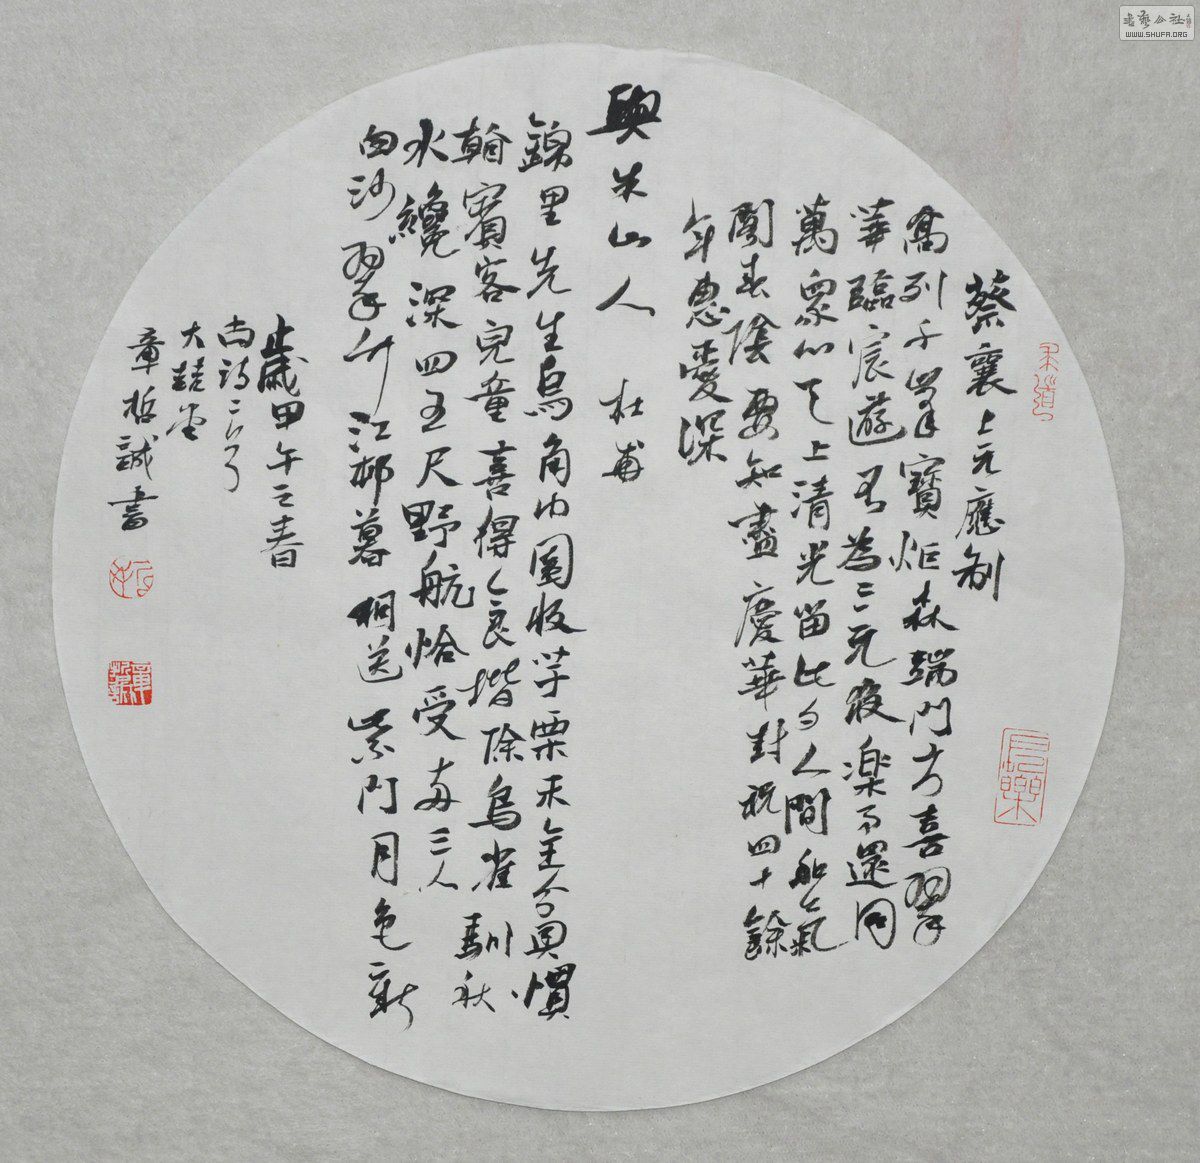 蔡襄上元應制
高列千峯寶炬森端門方喜翠
華臨宸遊不為三元夜樂事還同
萬眾心天上清光留此夕人間和氣
閣春陰要知盡慶華封祝四十餘
年惠愛深
與朱山人 杜甫
錦里先生烏角巾園收芋栗未全貧慣
看賓客兒童喜得食階除鳥雀馴秋
水纔深四五尺野航恰受兩三人
白沙翠竹江邨暮相送柴門月色新
歲甲午之春
詩二首
大堂
章哲誠書
章哲誠
書藝公社
WWW.SHUFA.ORG